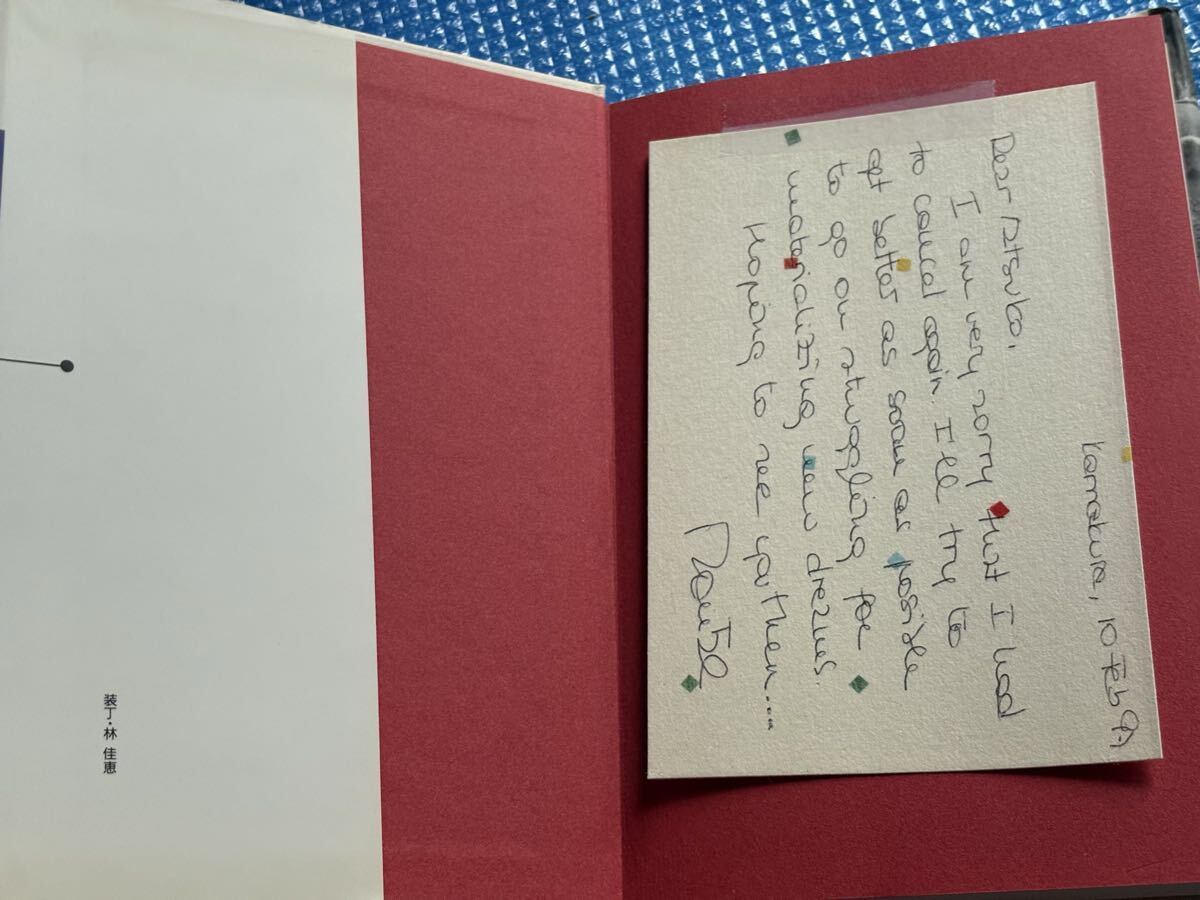 Kamakura, 10 Feb 91
Dear Natsuko,
I am very sorry that I had
to cancel again. I'll try to
get better as soon as possible
to go on struggling for
materializing new dreams.
Hoping to see you then...
装丁・林 佳恵